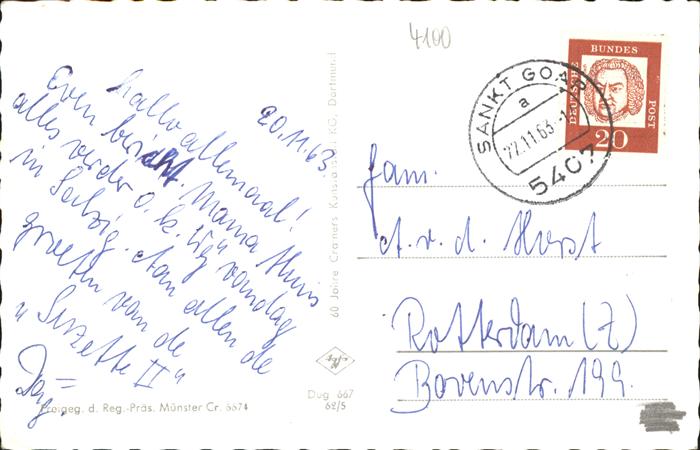 4100
20.11.63.
hallo allemaal!
Even bericht. Mama thuis
alles verder o.k. Lig vandag
in Salzig. Aan allen de
groeten van de
"Suzette II"
Dag.
Fotogeg. d. Reg.-Präs. Münster Cr. 6674
60 Jahre Cramers Kunstanstalt KG, Dortmund
Dug 667
62/5
DEUTSCHE
BUNDES
POST
20
SANKT GOAR
a
22.11.63
5407
Fam.
A. v. d. Horst
Rotterdam (Z)
Bovenstr. 199.